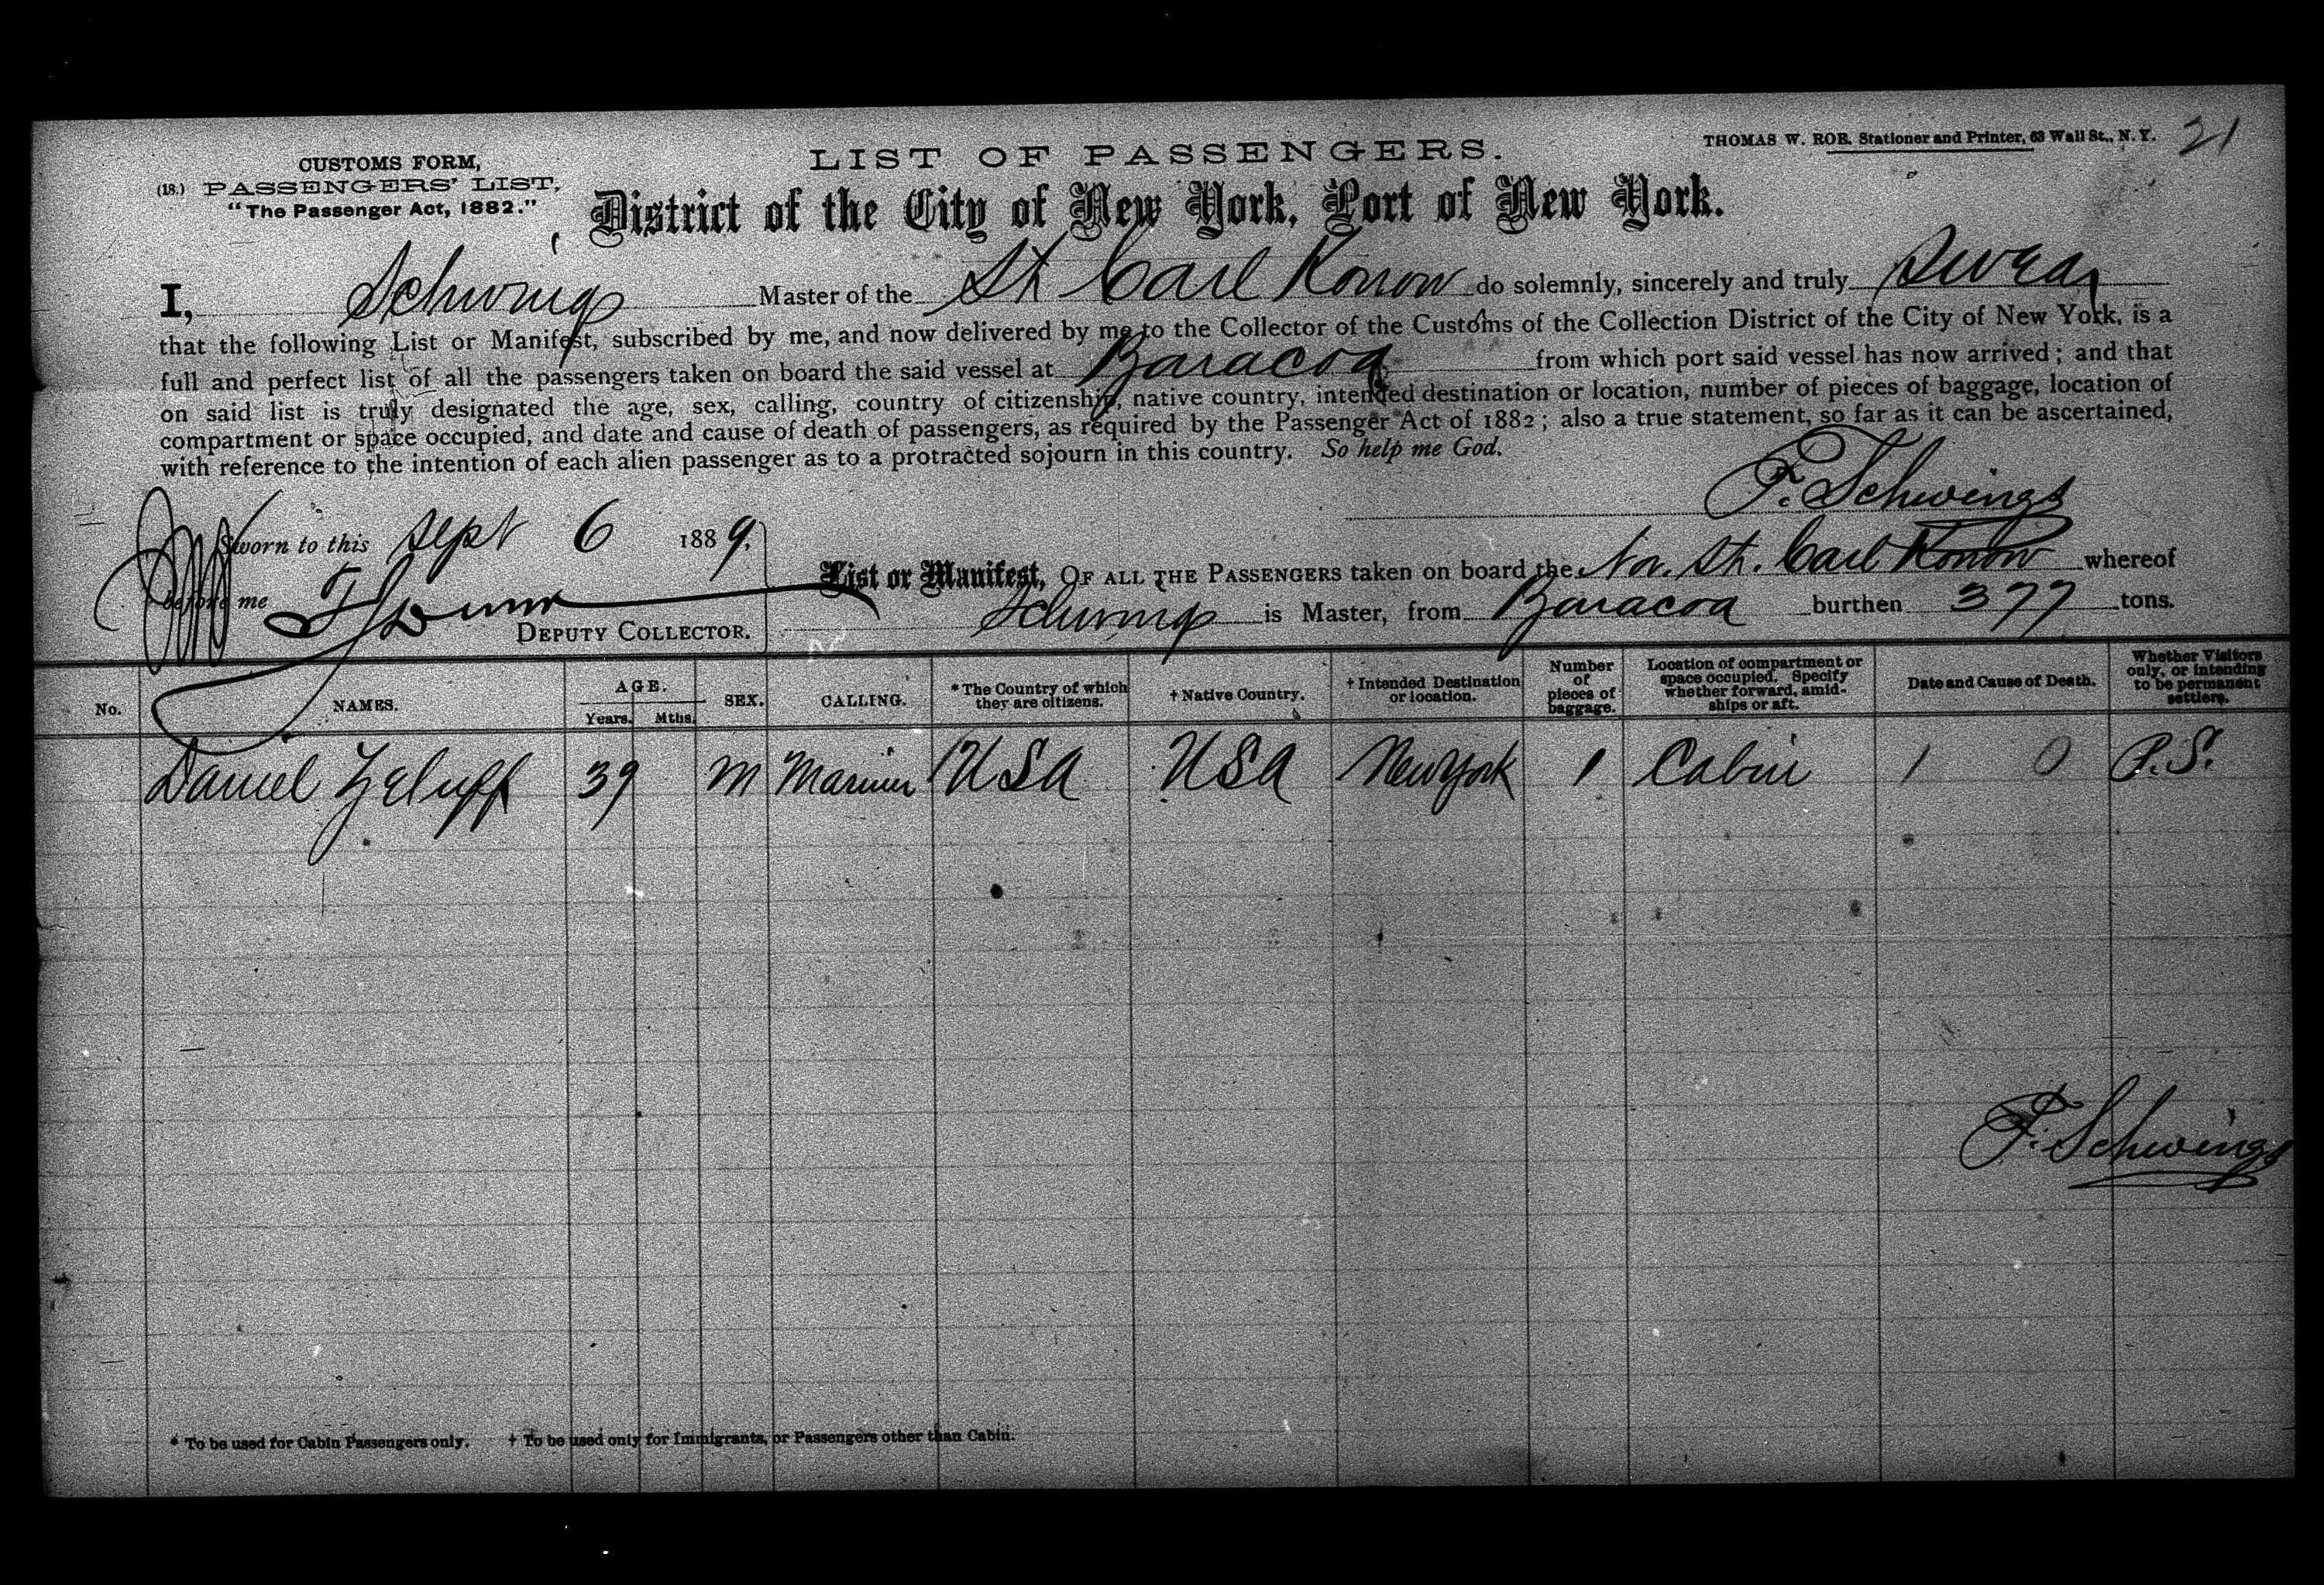 THOMAS W. ROE, Stationer and Printer, 63 Wall St., N. Y. 21
CUSTOMS FORM,
(18.) PASSENGERS' LIST,
"The Passenger Act, 1882."
LIST OF PASSENGERS.
District of the City of New York, Port of New York.
I, Schwings Master of the St Carl Konow do solemnly, sincerely and truly Swear
that the following List or Manifest, subscribed by me, and now delivered by me to the Collector of the Customs of the Collection District of the City of New York, is a
full and perfect list of all the passengers taken on board the said vessel at Baracoa from which port said vessel has now arrived; and that
on said list is truly designated the age, sex, calling, country of citizenship, native country, intended destination or location, number of pieces of baggage, location of
compartment or space occupied, and date and cause of death of passengers, as required by the Passenger Act of 1882; also a true statement, so far as it can be ascertained,
with reference to the intention of each alien passenger as to a protracted sojourn in this country. So help me God.
F. Schwings
Sworn to this Sept 6 1889.
before me
DEPUTY COLLECTOR.
List or Manifest, OF ALL THE PASSENGERS taken on board the Nor. St. Carl Konow whereof
Schwings is Master, from Baracoa burthen 377 tons.
No. NAMES. AGE. Years. Mths. SEX. CALLING. * The Country of which they are citizens. † Native Country. † Intended Destination or location. Number of pieces of baggage. Location of compartment or space occupied. Specify whether forward, amidships or aft. Date and Cause of Death. Whether Visitors only, or intending to be permanent settlers.
Daniel Zeluff 39 M Mariner USA USA New York 1 Cabin 1 0 P.S.
F. Schwings
* To be used for Cabin Passengers only. † To be used only for Immigrants, or Passengers other than Cabin.